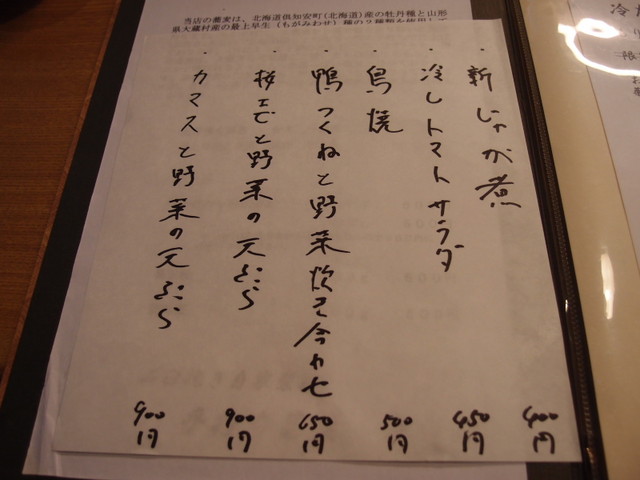 当店の蕎麦は、北海道倶知安町(北海道)産の牡丹種と山形
県大蔵村産の最上早生(もがみわせ)種の2種類を使用して
・新じゃが煮 400円
・冷しトマトサラダ 450円
・鳥焼 500円
・鴨つくねと野菜炊き合わせ 650円
・桜エビと野菜の天ぷら 900円
・カマスと野菜の天ぷら 900円